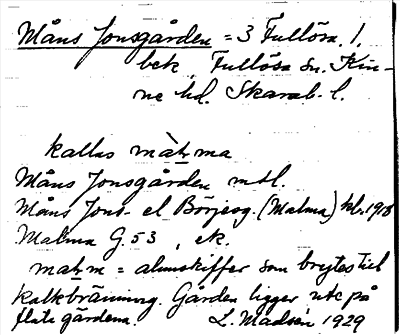 Måns Jonsgården = 3 Fullösa, 1.
bek. Fullösa sn. Kin-
ne hd. Skarab. l.
kallas màḷma
Måns Jonsgården mtl.
Måns Jons- el Börjesg. (Malma) hl. 1918
Malma G. 53, ek.
maḷm = alunskiffer som brytes till
kalkbränning. Gården ligger ute på
flata gärdena. L. Madsén 1929